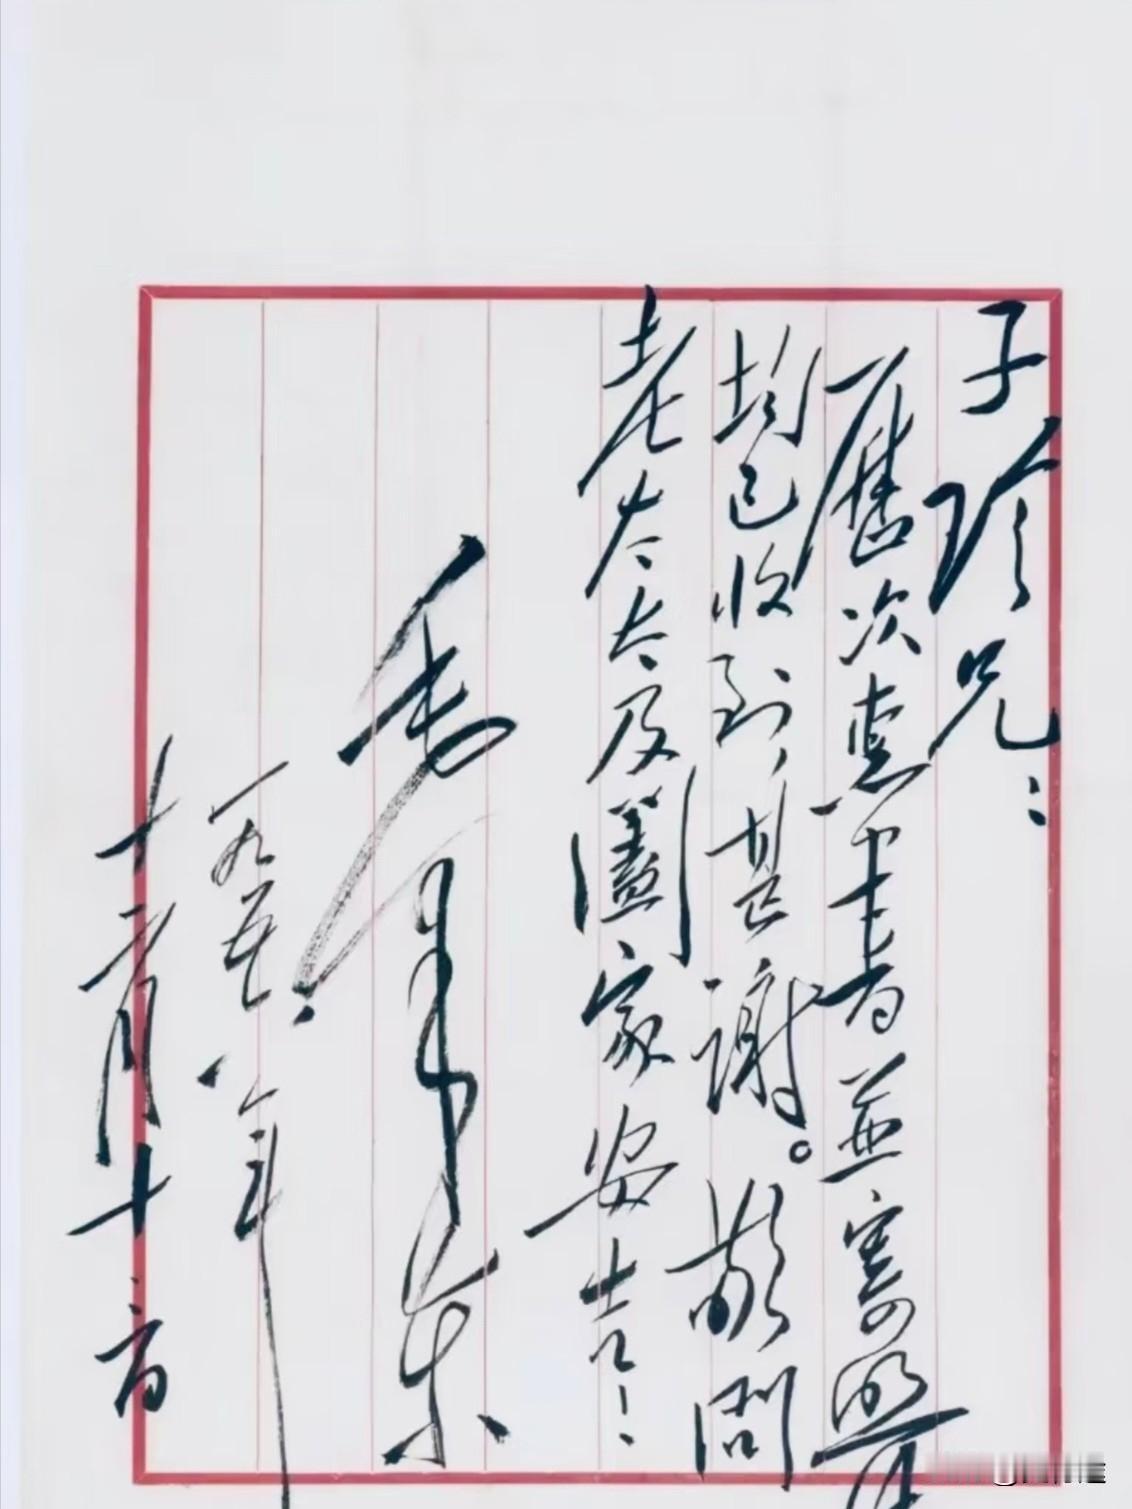 子珍兄：
历次惠书并寄照片
均已收到，甚谢。敬问
老太太及阖家安吉！
毛泽东
一九五八年
十二月十二日